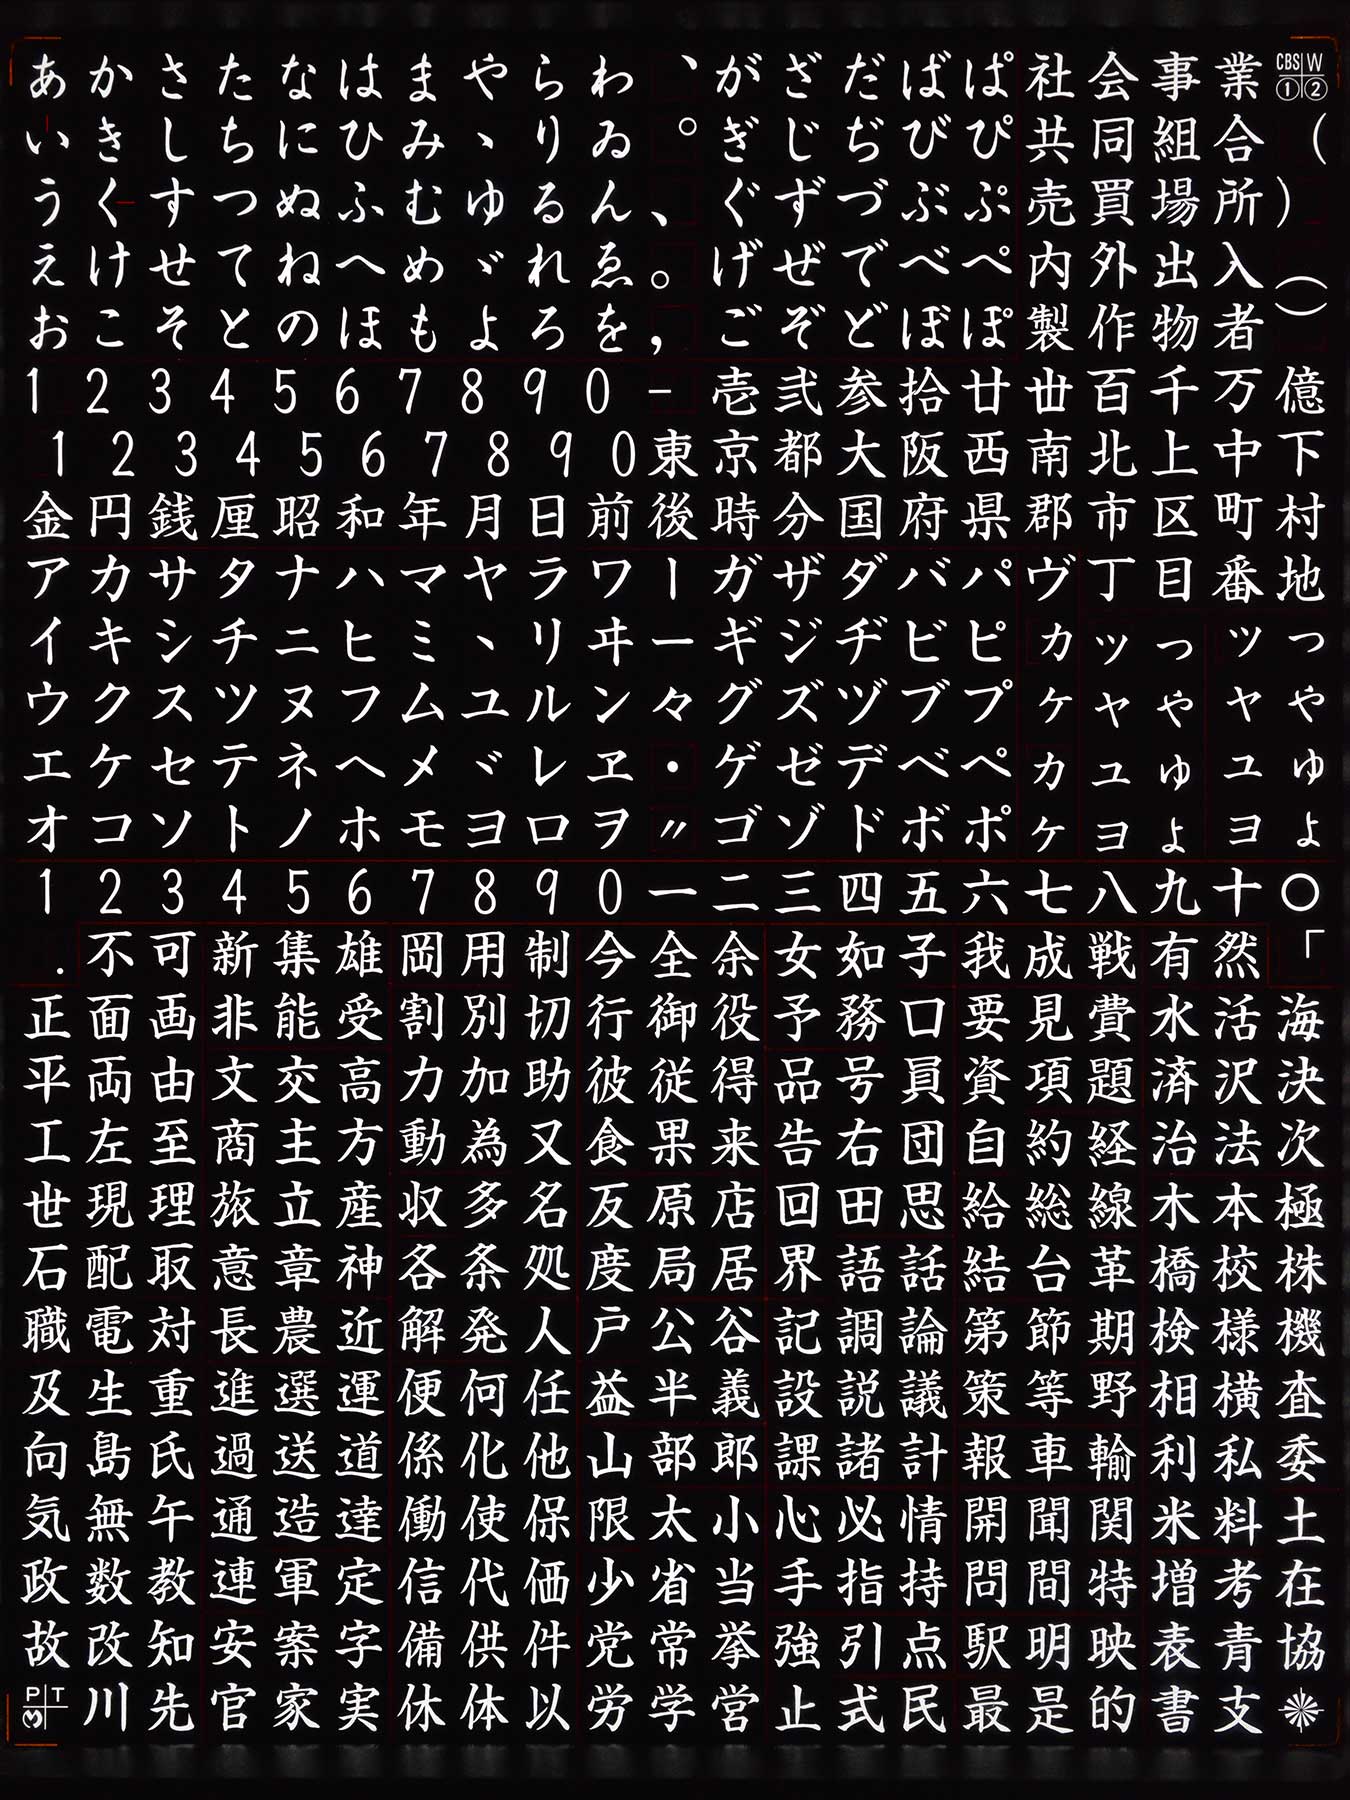 あかさたなはまやらわ、がざだばぱ社会事業CBS W ① ②
いきしちにひみヽりゐ。ぎじぢびぴ共同組合（
うくすつぬふむゆるん、ぐずづぶぷ売買場所）
えけせてねへめゞれゑ。げぜでべぺ内外出入（
おこそとのほもよろを，ごぞどぼぽ製作物者）
1234567890-壱弐参拾廿丗百千万億
1234567890東京都大阪西南北上中下
金円銭厘昭和年月日前後時分国府県郡市区町村
アカサタナハマヤラワーガザダバパヴ丁目番地
イキシチニヒミヽリヰーギジヂビピヵッっッっ
ウクスツヌフムユルン々グズヅブプヶャゃャゃ
エケセテネヘメヾレヱ・ゲゼデベペカュゅュゅ
オコソトノホモヨロヲ〃ゴゾドボポケョょョょ
1234567890一二三四五六七八九十〇
.不可新集雄岡用制今全余女如子我成戦有然「
正面画非能受割別切行御役予務口要見費水活海
平両由文交高力加助彼従得品号員資項題済沢決
工左至商主方動為又食果来告右団自約経治法次
世現理旅立産収多名反原店回田思給総線木本極
石配取意章神各条処度局居界語話結台革橋校株
職電対長農近解発人戸公谷記調論第節期検様機
及生重進選運便何任益半義設説議策等野相横査
向島氏過送道係化他山部郎課諸計報車輸利私委
気無午通造達働使保限太小心必情開聞関米料土
政数教連軍定信代価少省当手指持問間特増考在
故改知安案字備供件党常挙強引点駅明映表青協
PT 3川先官家実休体以労学営止式民最是的書支